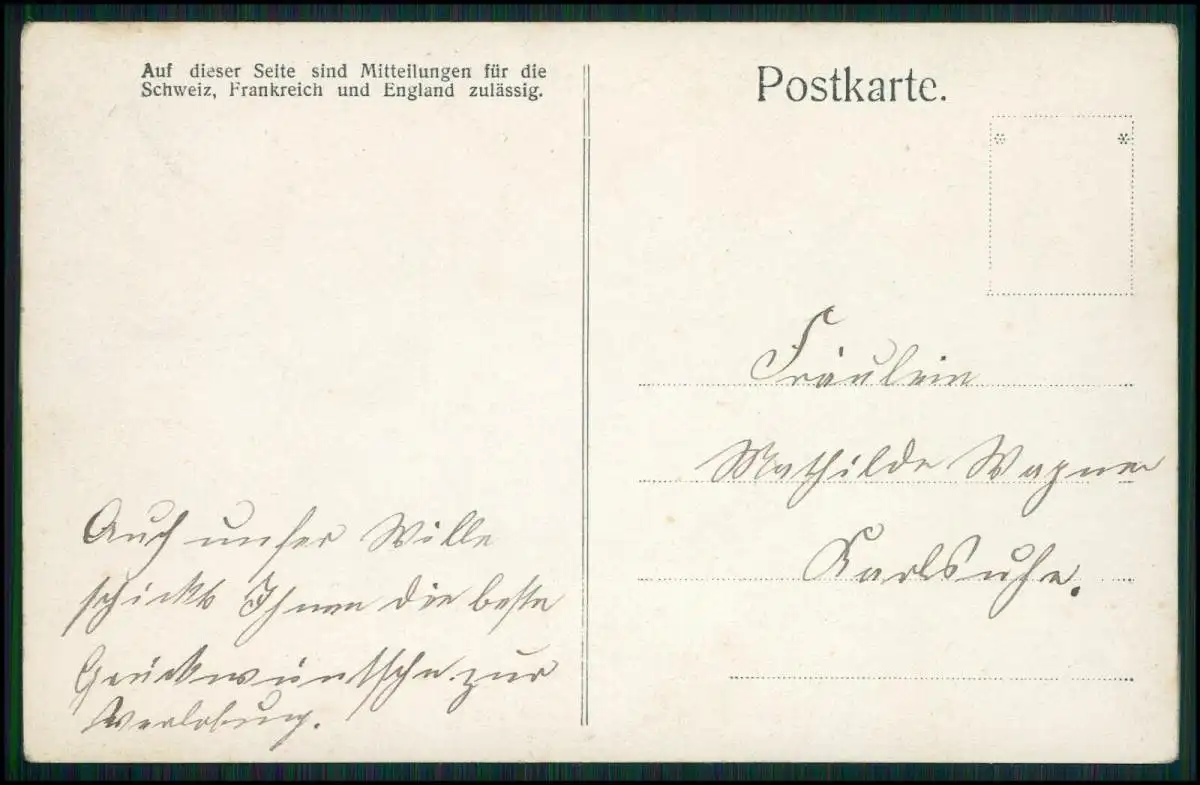 Auf dieser Seite sind Mitteilungen für die
Schweiz, Frankreich und England zulässig.
Postkarte.
Fräulein
Mathilde Wagner
Karlsruhe.
Auch unser Wille
schickt Ihnen die beste
Glückwüntsche zur
Verlobung.